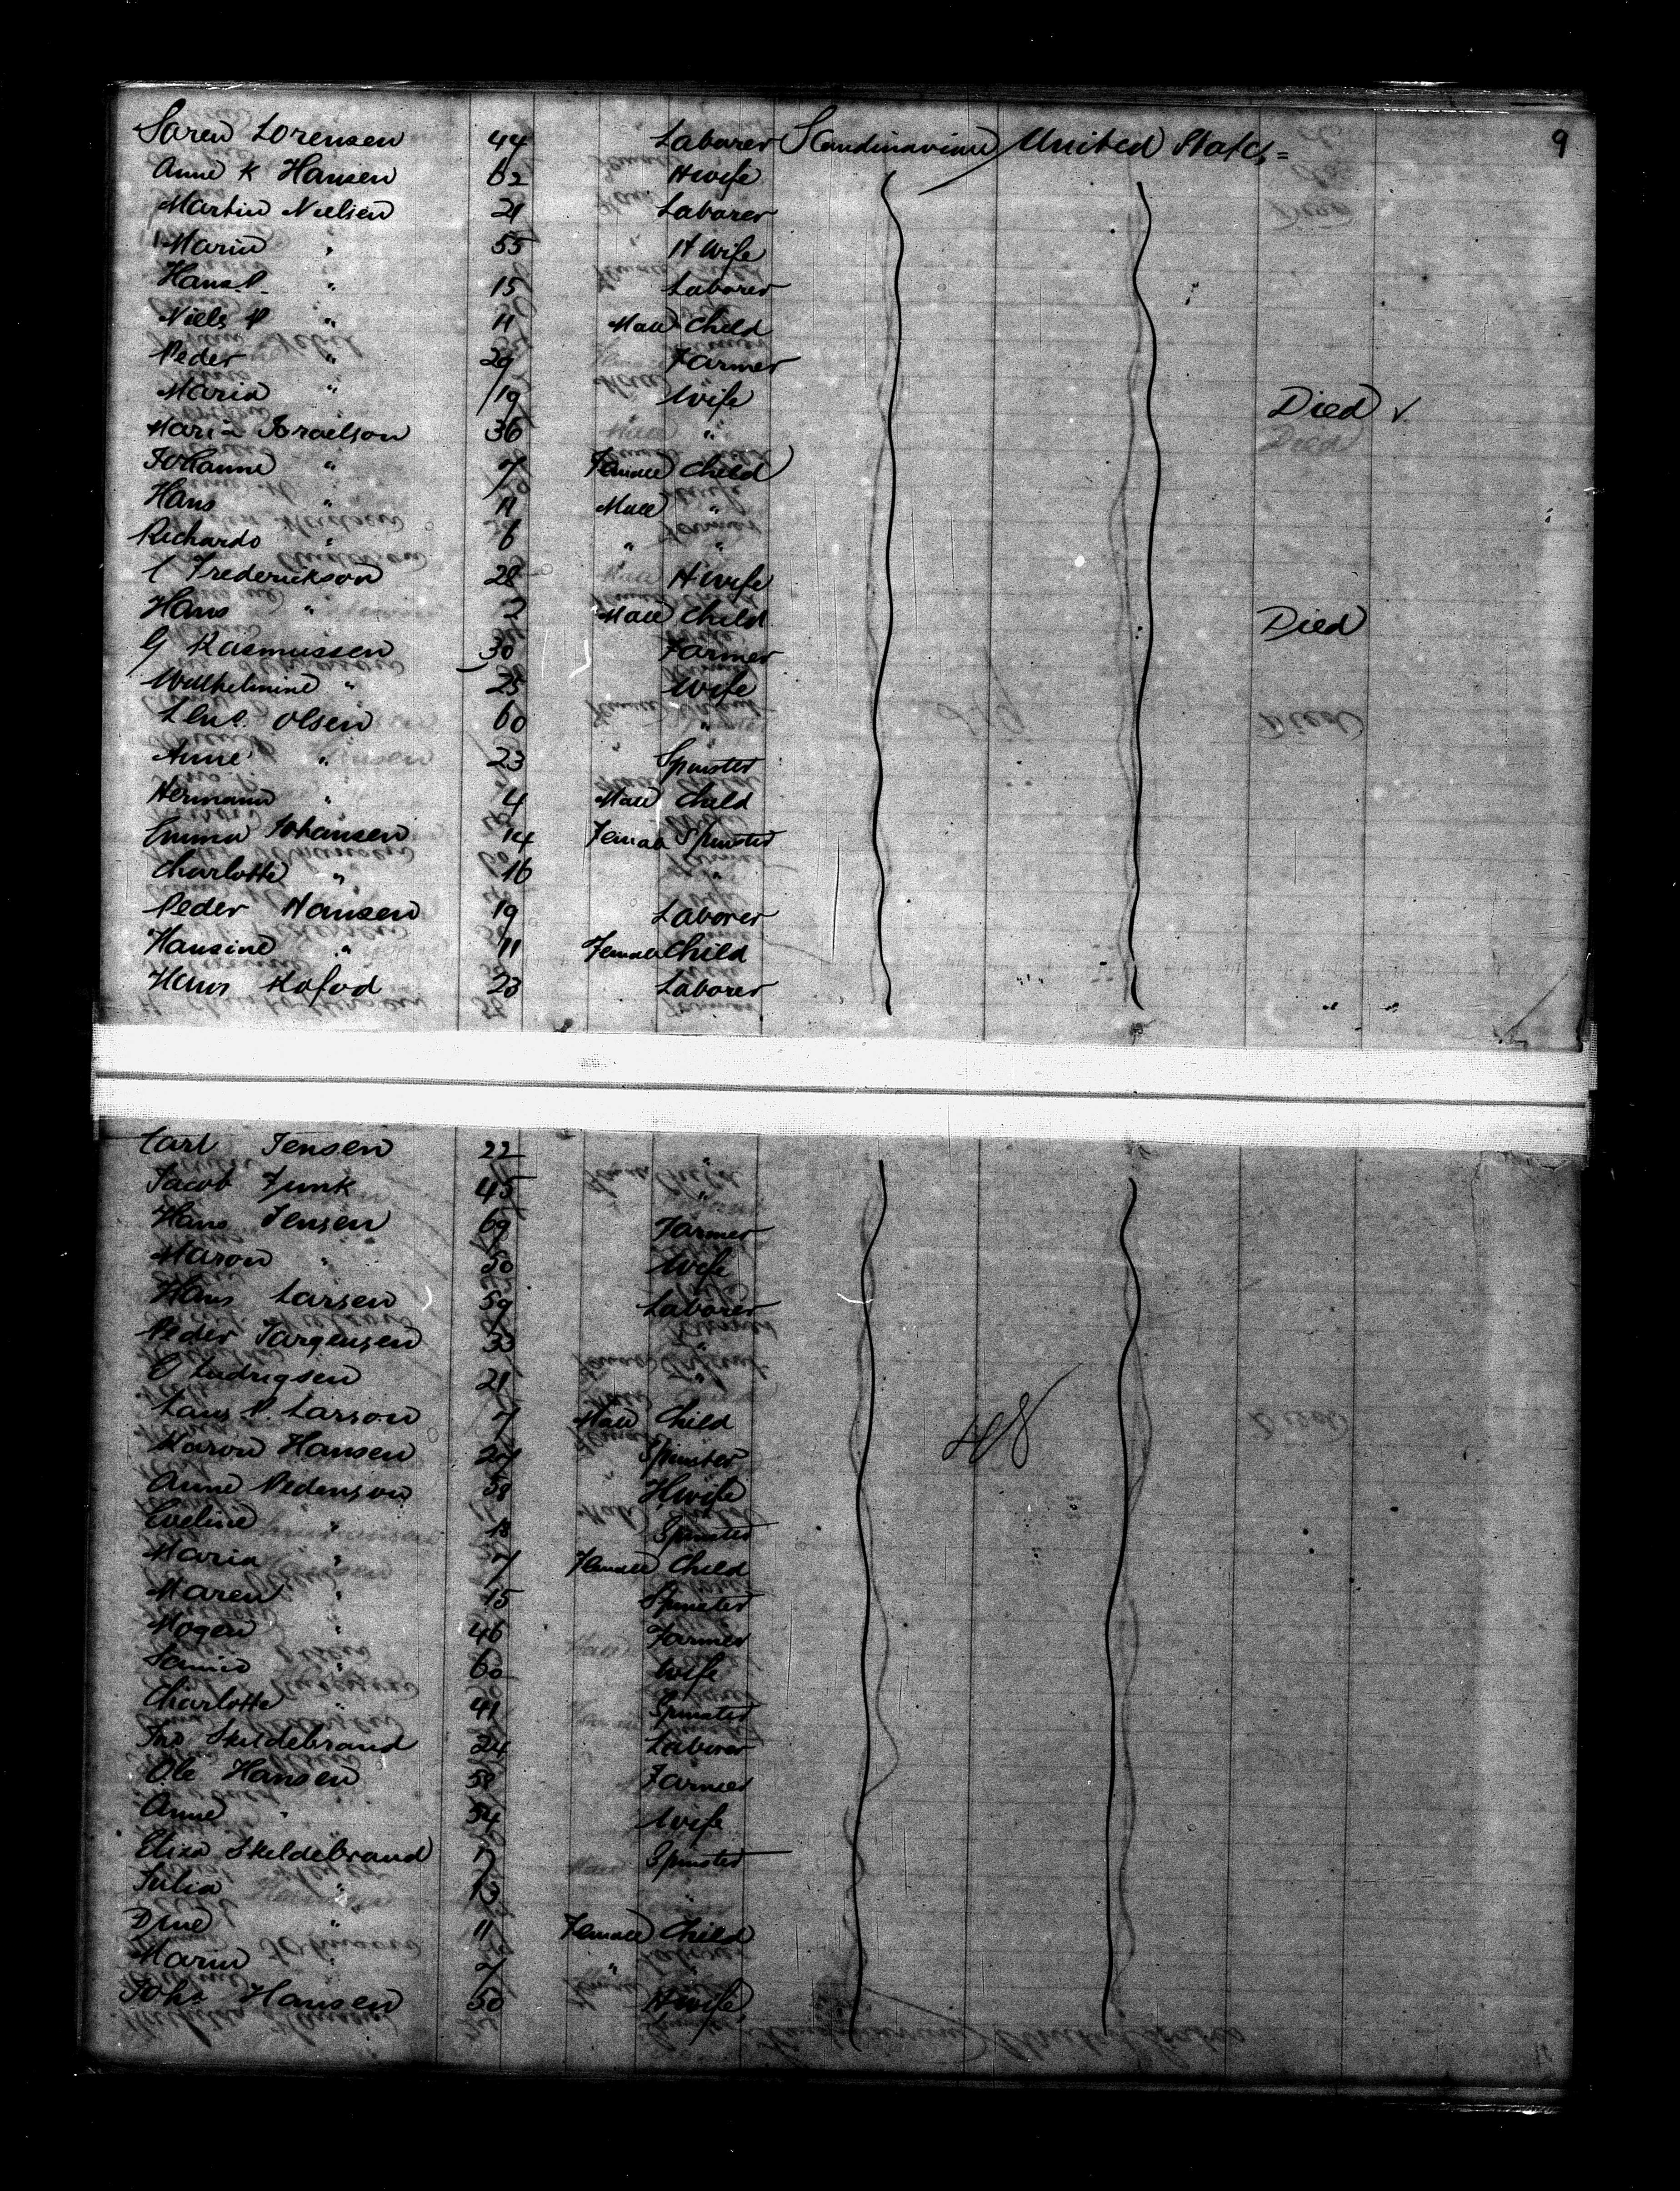 9
Soren Lorensen 44 Laborer Scandinavian United States =
Anne K Hansen 62 H wife
Martin Nielsen 21 Laborer
Marin " 55 H Wife
Hans P. " 15 Laborer
Niels P " 11 Male Child
Peder " 29 Farmer
Maria " 19 Wife Died ✓
Israelson 36 "
Johanne " 7 Female Child
Hans " 11 Male "
Richards " 6 " "
C Frederickson 28 H wife
Hans " 2 Male Child Died
G Rasmussen 30 Farmer
Willhelmine " 25 Wife
Lene Olsen 60 "
Anne " 23 Spinster
Hermann " 4 Male Child
Emma Johansen 14 Female Spinster
Charlotte " 16 "
Peder Hansen 19 Laborer
Hansine " 11 Female Child
Hans Kofod 23 Laborer
Carl Jensen 22 "
Jacob Funk 45 "
Hans Jensen 69 Farmer
Maron " 50 Wife
Hans Larsen 59 Laborer
Peder Jargensen 33 "
O Ludrigsen 21 "
Lars P. Larson 7 Male Child
Karon Hansen Spinster
Anne Pedenson H wife
Eveline " 18 Spinster
Maria " 7 Female Child
Maren " 15 Spinster
Mogen " 46 Farmer
" 60 Wife
Charlotte " 41 Spinster
Skildebrand 24 Laborer
Ole Hansen Farmer
Anne " 54 Wife
Eliza Skildebrand 17 Spinster
Julia " 13 "
" 11 Female Child
Marin " 7 "
Johs Hansen 50 H wife